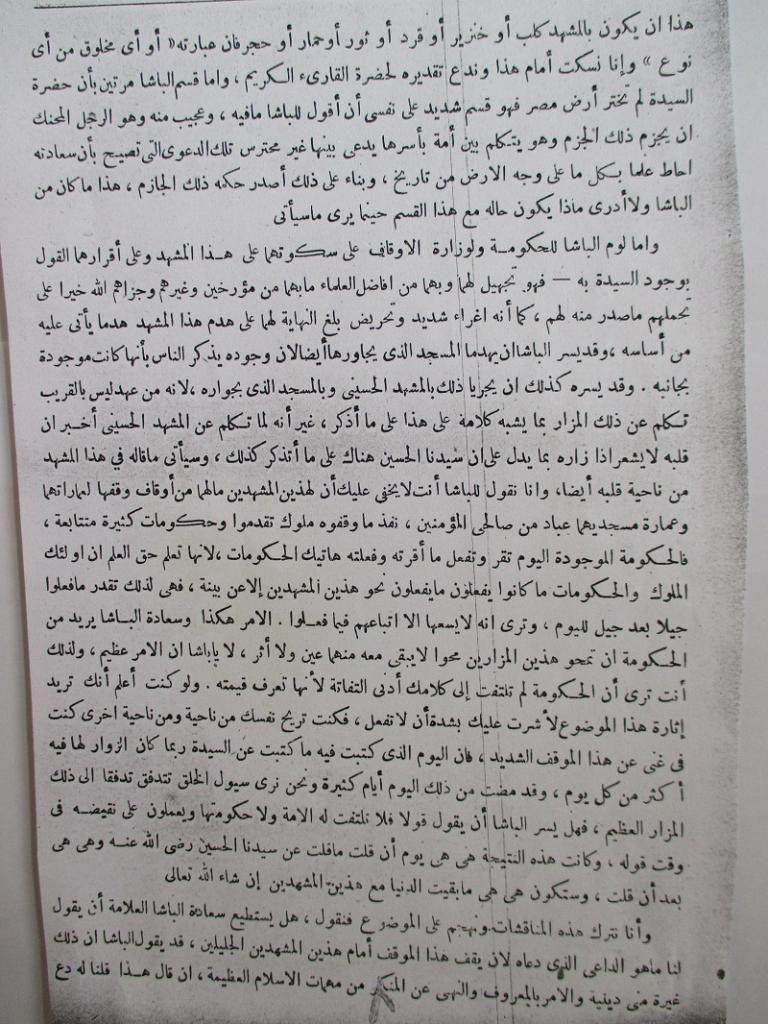 هذا ان يكون بالمشهد كلب أو خنزير أو قرد أو ثور أو حمار أو حجر فان عبارته « أو أى مخلوق من أى
نوع » وإنا نسكت أمام هذا وندع تقديره لحضرة القارىء الكريم ، واما قسم الباشا مرتين بأن حضرة
السيدة لم تختر أرض مصر فهو قسم شديد على نفسى أن أقول للباشا مافيه ، وعجيب منه وهو الرجل المحنك
ان يجزم ذلك الجزم وهو يتكلم بين أمة بأسرها يدعى بينها غير محترس تلك الدعوى التى تصيح بأن سعادته
احاط علما بكل ما على وجه الارض من تاريخ ، وبناء على ذلك أصدر حكمه ذلك الجازم ، هذا ما كان من
الباشا ولا أدرى ماذا يكون حاله مع هذا القسم حينما يرى ماسيأتى
واما لوم الباشا للحكومة ولوزارة الاوقاف على سكوتهما على هذا المشهد وعلى أقرارهما القول
بوجود السيدة به — فهو تجهيل لهما وبهما من افاضل العلماء مابهما من مؤرخين وغيرهم وجزاهم الله خيرا على
تحملهم ماصدر منه لهم ، كما أنه اغراء شديد وتحريض بلغ النهاية لهما على هدم هذا المشهد هدما يأتى عليه
من أساسه ، وقد يسر الباشا ان يهدما المسجد الذى يجاورها أيضا لان وجوده يذكر الناس بأنها كانت موجودة
بجانبه . وقد يسره كذلك ان يجريا ذلك بالمشهد الحسينى وبالمسجد الذى بجواره ، لانه من عهد ليس بالقريب
تكلم عن ذلك المزار بما يشبه كلامه على هذا على ما أذكر ، غير أنه لما تكلم عن المشهد الحسينى أخبر ان
قلبه لايشعر اذا زاره بما يدل على ان سيدنا الحسين هناك على ما أتذكر كذلك ، وسيأتى ماقاله في هذا المشهد
من ناحية قلبه أيضا، وانا نقول للباشا أنت لايخفى عليك أن لهذين المشهدين مالهما من أوقاف وقفها لعماراتهما
وعمارة مسجديهما عباد من صالحى المؤمنين ، نفذ ما وقفوه ملوك تقدموا وحكومات كثيرة متتابعة ،
فالحكومة الموجودة اليوم تقر وتفعل ما أقرته وفعلته هاتيك الحكومات ، لانها تعلم حق العلم ان اولئك
الملوك والحكومات ما كانوا يفعلون مايفعلون نحو هذين المشهدين إلا عن بينة ، فهى لذلك تقدر مافعلوا
جيلا بعد جيل لليوم ، وترى انه لايسعها الا اتباعهم فيما فعلوا . الامر هكذا وسعادة الباشا يريد من
الحكومة ان تمحو هذين المزارين محوا لايبقى معه منهما عين ولا أثر ، لا ياباشا ان الامر عظيم ، ولذلك
أنت ترى أن الحكومة لم تلتفت إلى كلامك أدنى التفاتة لأنها تعرف قيمته . ولو كنت أعلم أنك تريد
إثارة هذا الموضوع لأشرت عليك بشدة أن لاتفعل ، فكنت تريح نفسك من ناحية ومن ناحية اخرى كنت
فى غنى عن هذا الموقف الشديد ، فان اليوم الذى كتبت فيه ما كتبت عن السيدة ربما كان الزوار لها فيه
أكثر من كل يوم ، وقد مضت من ذلك اليوم أيام كثيرة ونحن نرى سيول الخلق تتدفق تدفقا الى ذلك
المزار العظيم ، فهل يسر الباشا أن يقول قولا فلا تلتفت له الامة ولا حكومتها ويعملون على نقيضه فى
وقت قوله ، وكانت هذه النتيجة هى هى يوم أن قلت ماقلت عن سيدنا الحسين رضى الله عنه وهى هى
بعد أن قلت ، وستكون هى هى مابقيت الدنيا مع هذين المشهدين إن شاء الله تعالى
وأنا نترك هذه المناقشات ونهجم على الموضوع فنقول ، هل يستطيع سعادة الباشا العلامة أن يقول
لنا ماهو الداعى الذى دعاه لان يقف هذا الموقف أمام هذين المشهدين الجليلين ، قد يقول الباشا ان ذلك
غيرة منى دينية والامر بالمعروف والنهى عن المنكر من مهمات الاسلام العظيمة ، ان قال هذا قلنا له دع